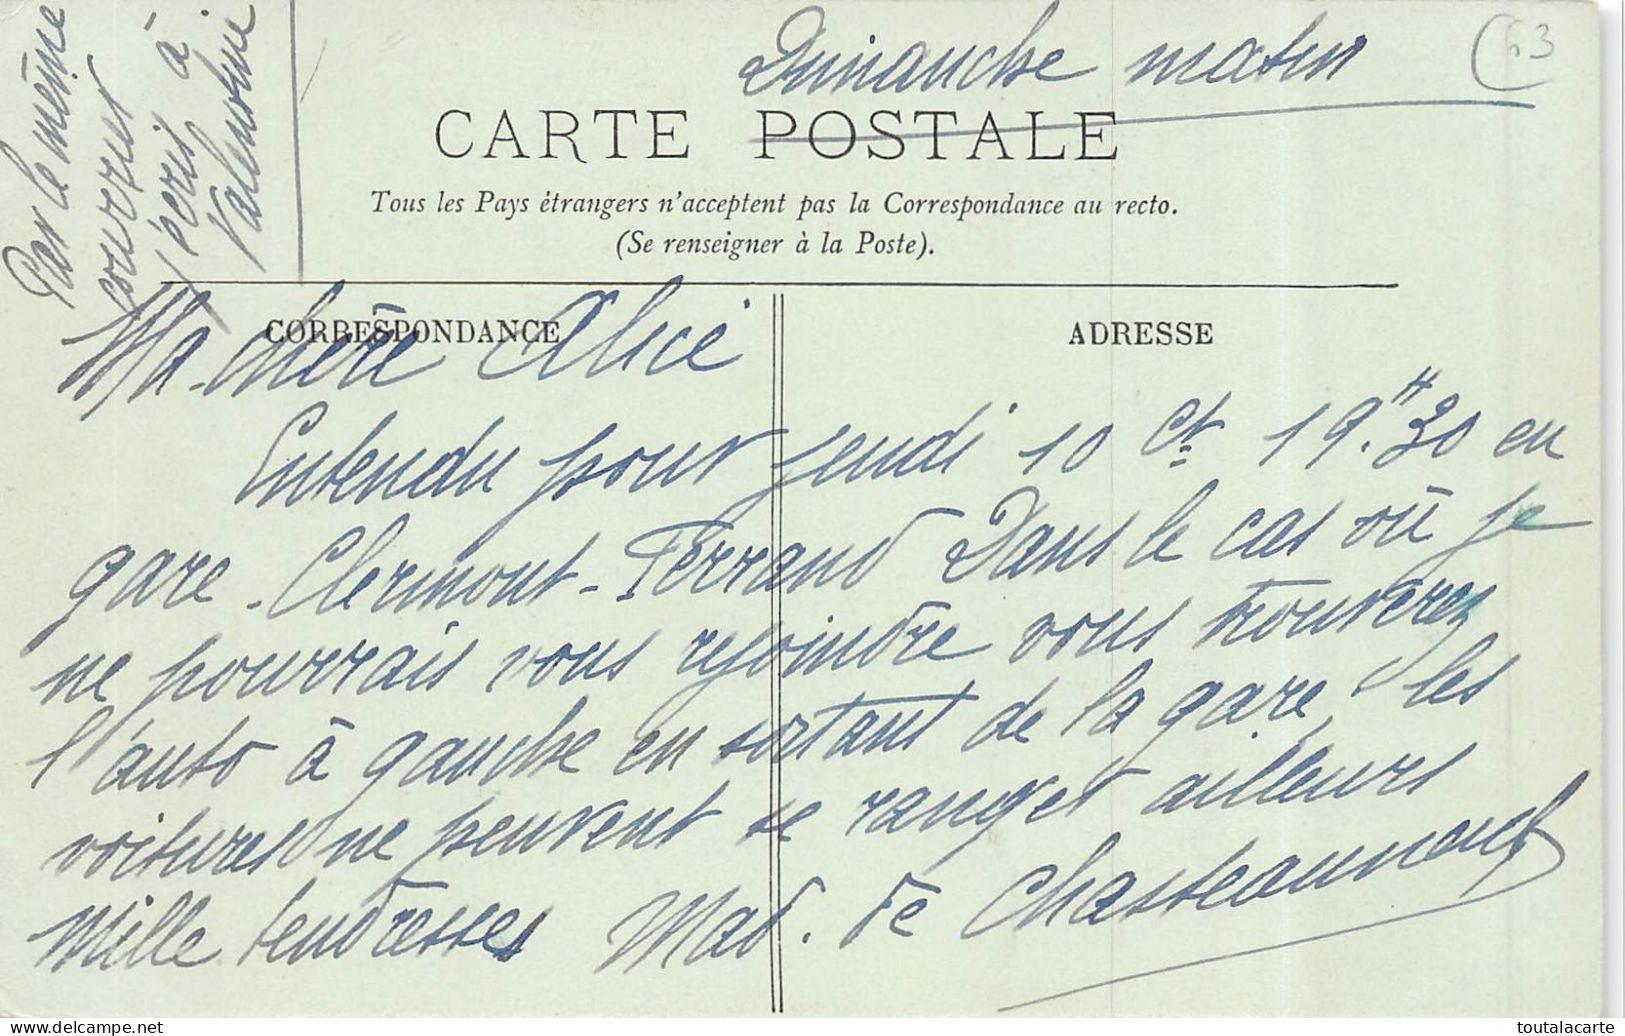 Dimanche matin
63
Par le même
courrier
j'écris à
Valentine
CARTE POSTALE
Tous les Pays étrangers n'acceptent pas la Correspondance au recto.
(Se renseigner à la Poste).
CORRESPONDANCE
ADRESSE
Ma chère Alice
Entendu pour jeudi 10 ct 19.H30 en
gare - Clermont-Ferrand Dans le cas où je
ne pourrais vous rejoindre vous trouverez
l'auto à gauche en sortant de la gare, les
voitures ne peuvent se ranger ailleurs
Mille tendresses Mad. de Chasteauneuf
delcampe.net
toutalacarte